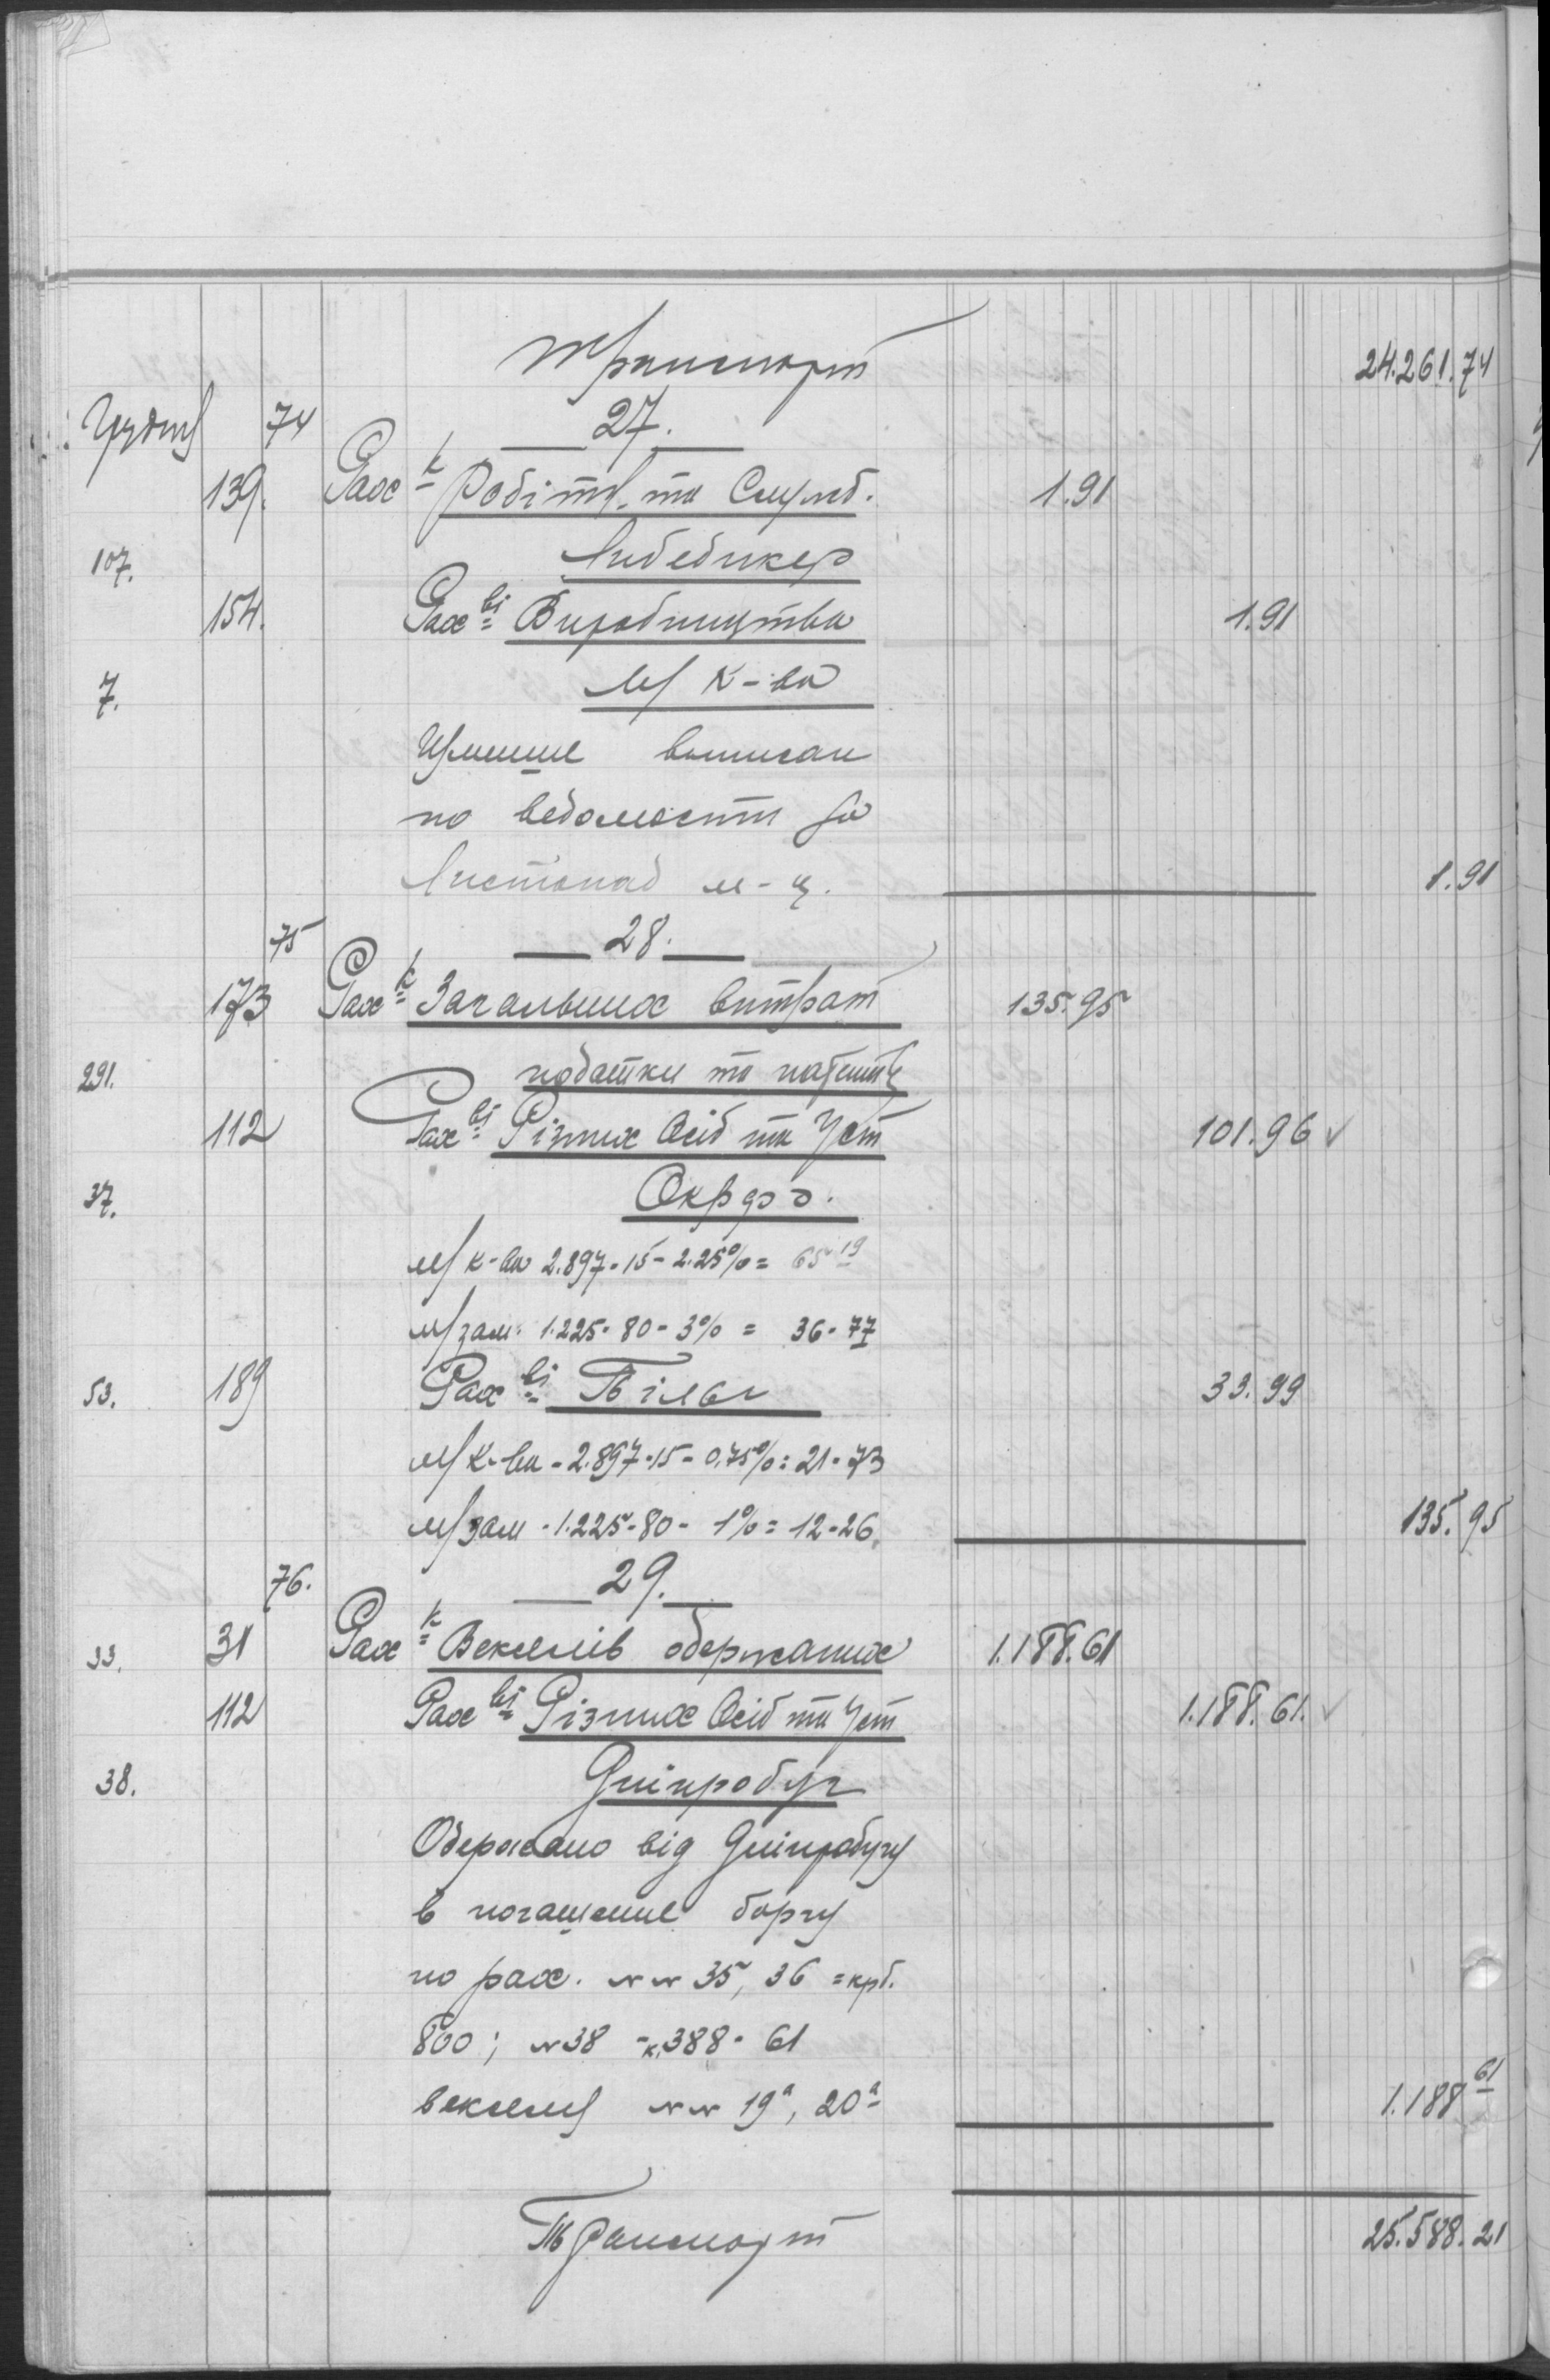 Транспорт 24.261.74
Грудня 74 27.
139. Рах к Робітн. та Служб. 1.91
107. Либединер
154. Рах ві Виробництва 1.91
7. М/ К-ва
выписан
по ведомости за
Листопад м-ц. 1.91
75 28.
173 Рах к Загальних витрат 135.95
291. податки та патенти
112 Рах ві Різних Осіб та Уст 101.96 ✓
37. Окрфо.
М/ к-ва 2.897-15-2.25% = 65-19
М/ зам. 1.225-80-3% = 36-77
53. 189 Рах ві Пільги 33.99
М/ К-ва - 2.897-15-0,75% = 21-73
М/ зам - 1.225-80 - 1% = 12-26. 135.95
76. 29.
33. 31 Рах к Векселів одержаних 1.188.61
112 Рах ві Різних Осіб та Уст 1.188.61. ✓
38. Дніпробуг
Одержано від Дніпробугу
в погашение боргу
по рах. №№ 35, 36 = крб.
800; №38 - к. 388-61
векселя №№ 19а, 20а 1.188 61
Транспорт 25.588.21